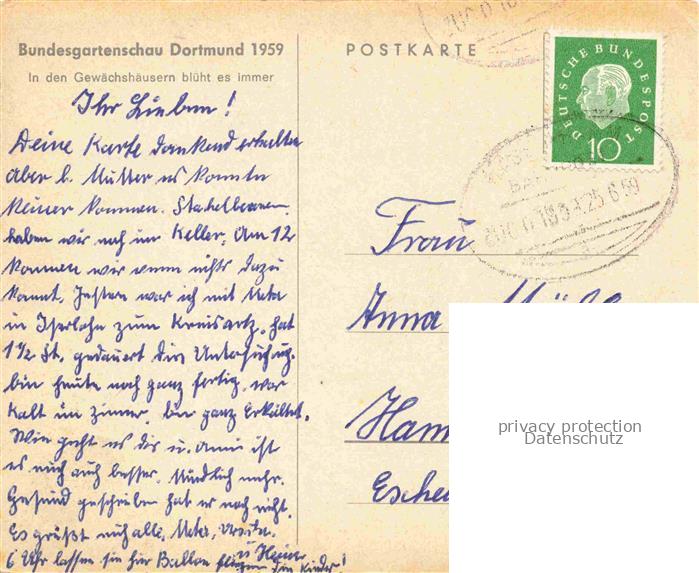 Bundesgartenschau Dortmund 1959
In den Gewächshäusern blüht es immer
POSTKARTE
DEUTSCHE BUNDESPOST
10
ZUG 0 189 25 6 59
Ihr Lieben!
Deine Karte dankend erhalten
aber l. Mutter es konnte
keiner kommen. Stachelbeeren
haben wir noch im Keller, Am 12
kommen wir wenn nichts dazu
kommt. Gestern war ich mit Meta
in Iserlohn zum Kreisartz, hat
1 1/2 St. gedauert die Untersuchung.
bin heute noch ganz fertig, war
kalt im Zimmer, bin ganz Erkältet.
Wie geht es dir u. Anni ist
es auch besser. Mündlich mehr.
Gesund geschrieben hat er noch nicht.
Es grüßt euch alle, Meta,
u Heiner
6 Uhr lassen sie hier Ballon fliegen die Kinder!
Frau
Anna
privacy protection
Datenschutz